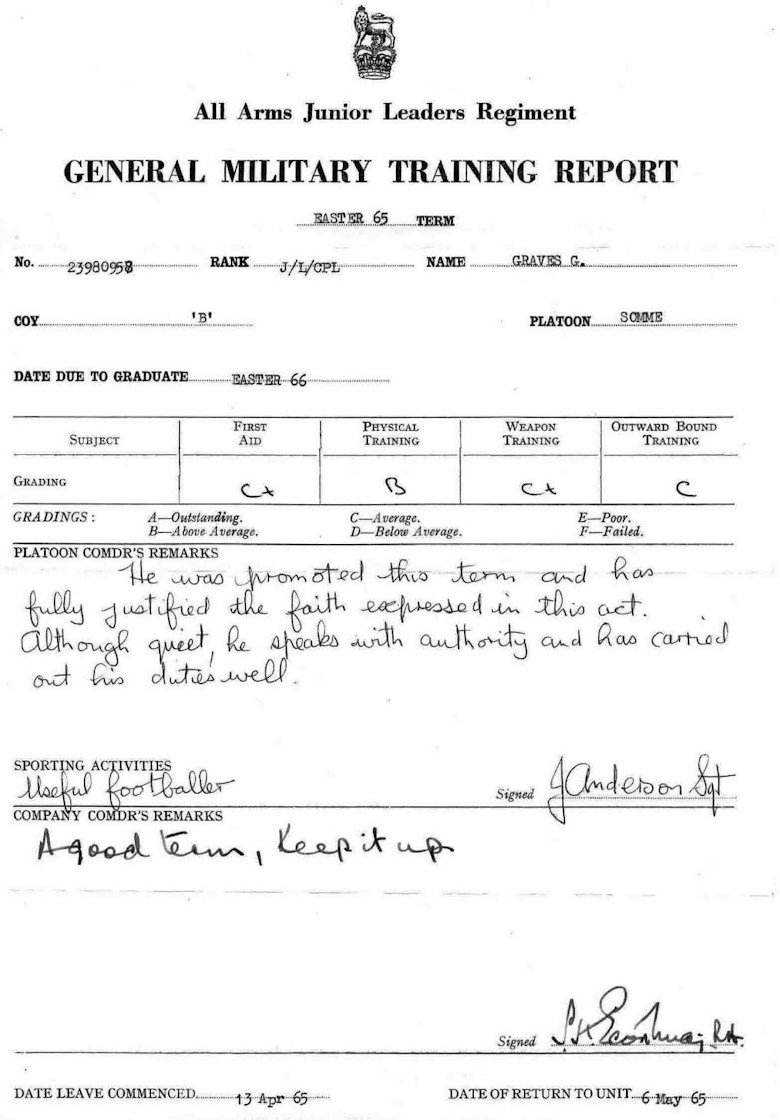 All Arms Junior Leaders Regiment
GENERAL MILITARY TRAINING REPORT
EASTER 65 TERM
No. RANK J/L/CPL NAME GRAVES G.
COY 'B' PLATOON SOMME
DATE DUE TO GRADUATE EASTER 66
SUBJECT FIRST AID PHYSICAL TRAINING WEAPON TRAINING OUTWARD BOUND TRAINING
GRADING C+ B C+ C
GRADINGS : A—Outstanding. C—Average. E—Poor.
B—Above Average. D—Below Average. F—Failed.
PLATOON COMDR'S REMARKS
He was promoted this term and has
fully justified the faith expressed in this act.
Although quiet, he speaks with authority and has carried
out his duties well.
SPORTING ACTIVITIES
Useful footballer
Signed J Anderson Sgt
COMPANY COMDR'S REMARKS
A good term, Keep it up
Signed
DATE LEAVE COMMENCED 13 Apr 65 DATE OF RETURN TO UNIT 6 May 65